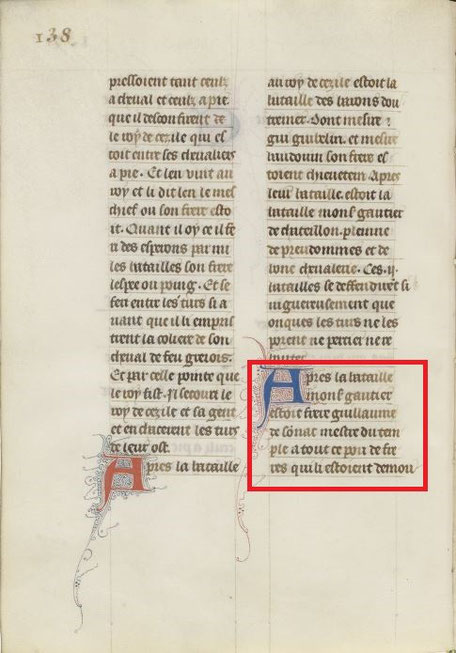 138
pressoient tant ceulz
a cheual et ceulz a pie
que il desconfirent de
le roy de cezile qui es
toit entre ses cheualiers
a pie. Et len vint au
roy et li dit len le mes
chief ou son frere esto
it. Quant il oy ce il fe
ri des esperons parmi
les batailles son frere
lespee ou poing. Et se
feri entre les turs si a
uant que il li empris
trent la coliere de son
cheual de feu gregois.
Et par celle pointe que
le roy fist. Il secouri le
roy de cezile et sa gent
et en chacerent les turs
de leur ost.
Apres la bataille
au roy de cezile estoit la
bataille des barons dou
tremer. Dont mesire
gui guibelin. et mesire
baudouin son frere es
toient cheuetein. Apres
leur bataille. estoit la
bataille mons gautier
de chateillon. pleinne
de preudommes et de
bone cheualerie. Ces .ij.
batailles se deffendirent si
uiguereusement que
onques les turs ne les
porent ne percier ne re
Apres la bataille
mons gautier
estoit frere guillaume
de sonac mestre du tem
ple a tout ce pou de fre
res qui li estoient demou